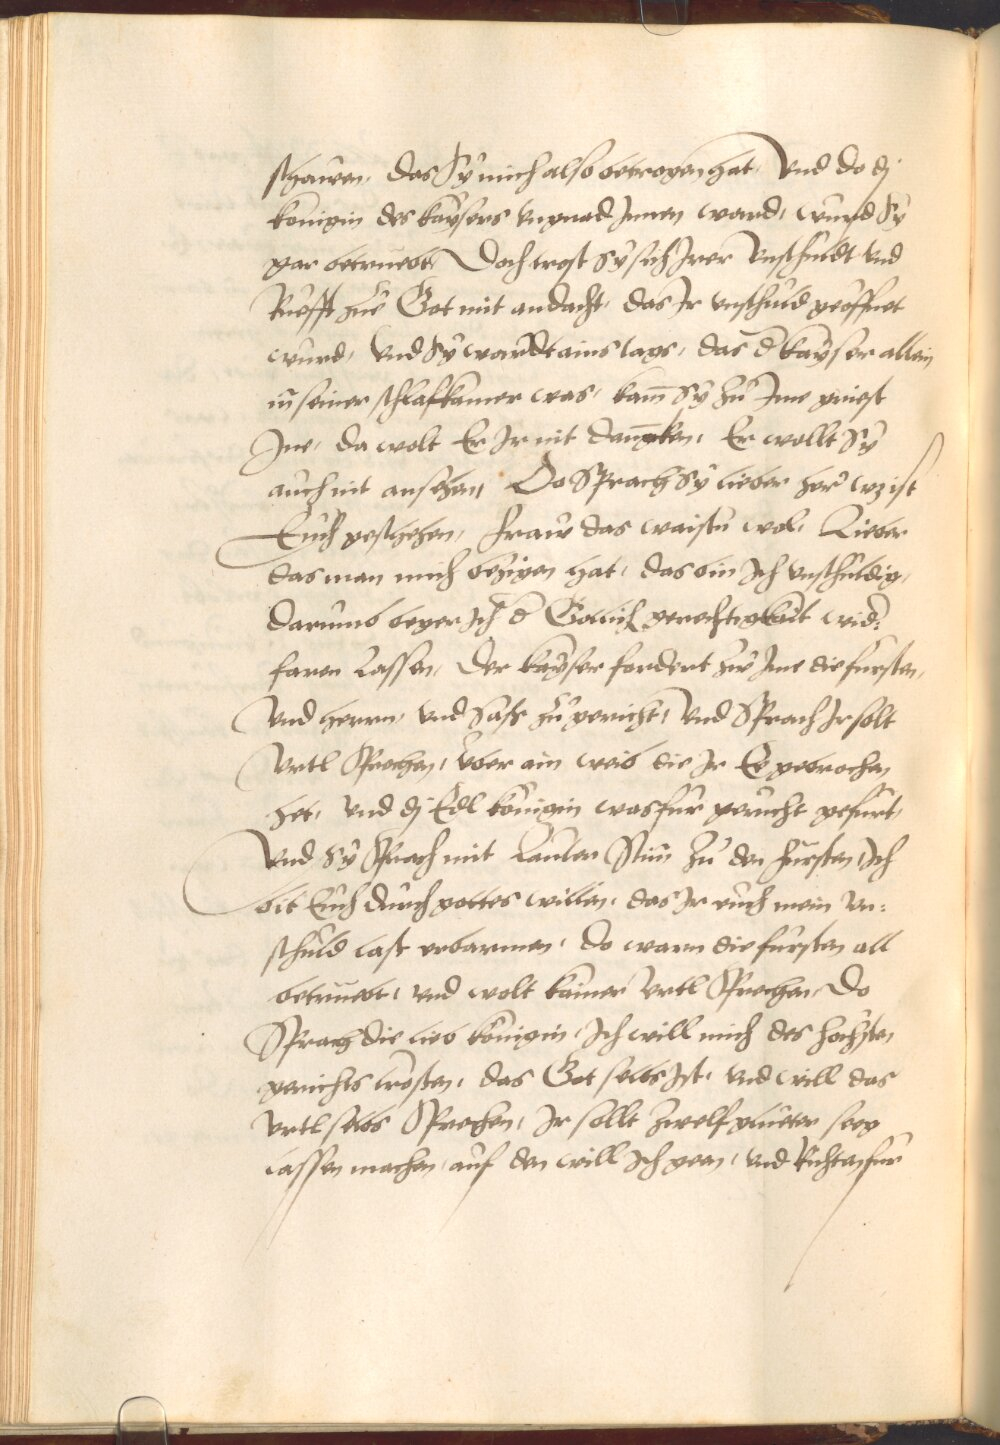 schawen, das Sÿ mich also betrogen hat, Vnd do dj
konigin des kaÿsers vngnad Innen ward, wurd Sÿ
gar betruebt Doch trost Sÿ sich Irer Vnschuldt vnd
Rüefft zue Got mit andacht, das Ir vnschuld geöffnet
wurd, Vnd Sÿ wardt ains tags, das d kaÿser allein
in seiner schlafkamer was, kam Sÿ zu Ime griest
Ine, da wolt Er Ir nit danngken, Er wollt Sÿ
auch nit ansehen, Do Sprach Sÿ lieber her wz ist
Euch geschehen, fraw das waistu wol, Lieber
das man mich bezigen hat, das bin Ich vnschuldig,
darumb beger Ich d Götlich gerechtigkait wid:
faren lassen, Der kaÿser fordert zu Ime die fursten,
Vnd herrn, vnd Sass zu gericht, Vnd Sprach Ir solt
Vrtl Sprechen, Vber ain weib die Ir Ee gebrochen
het, Vnd dj Edl konigin was fur gericht gefurt,
Vnd Sÿ Sprach mit lauter Stim zu den fursten, Ich
bit Euch durch gottes willen, das Ir euch mein vn:
schuld last erbarmen, do warn die fursten all
betruebt, vnd wolt kainer Vrtl Sprechen, Do
Sprach die lieb konigin, Ich will mich des hochsten
gerichts trosten, das Got selbs Ist, vnd will das
Vrtl selbs Sprechen, Ir sollt zwelf glueter seeg
lassen machen, auf den will Ich geen, vnd Richten fur